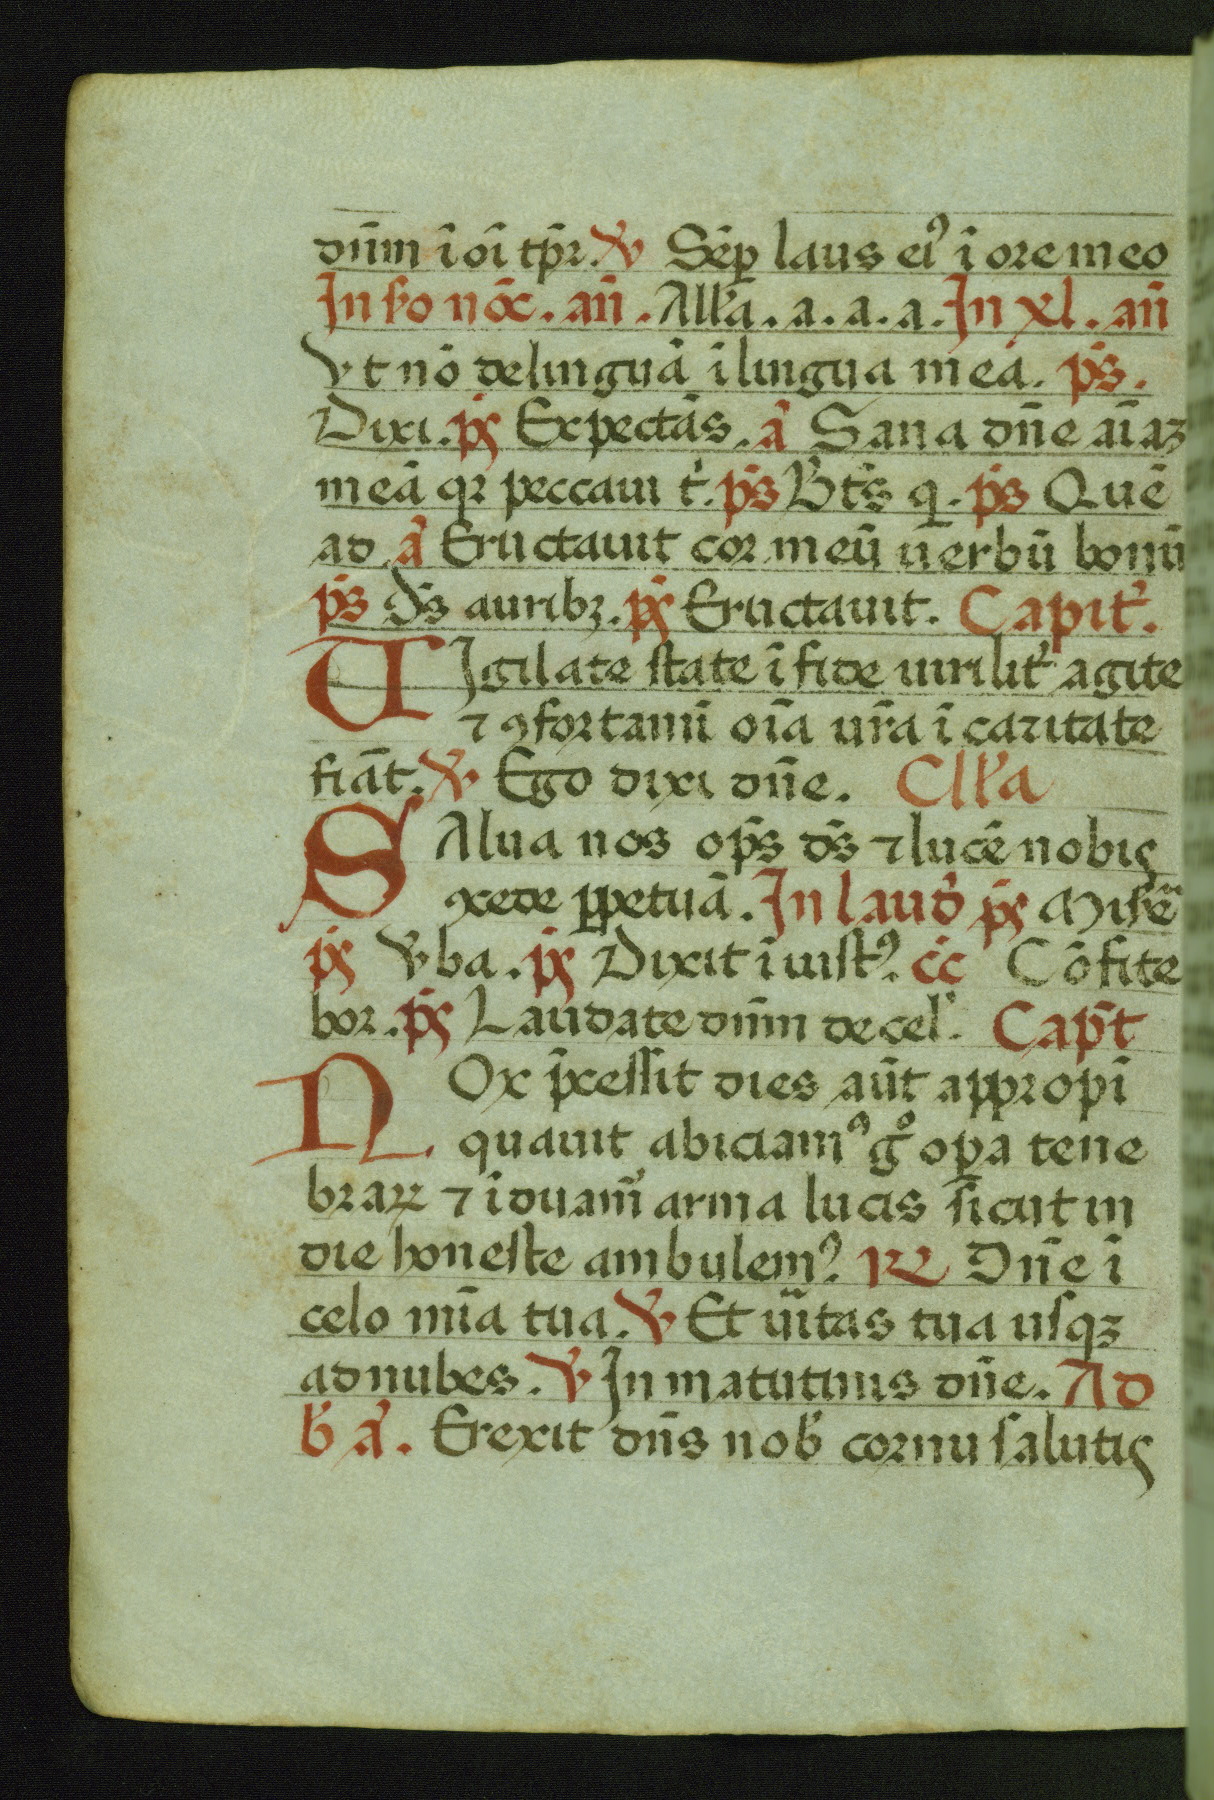 dn̄m ī oī tp̄r. ℣ Sēp laus eiꝰ ī ore meo
In s̄o nōc. an̄. All̄a. a. a. a. In xl. an̄
Vt nō delinquā ī lingua mea. ps̄.
Dixi. ps̄ Expectās. a᷑ Sana dn̄e aīaꝫ
meā qꝛ peccaui t᷑. ps̄ Bt̄s q. ps̄ Quē
ad. a᷑ Eructauit cor meū uerbū bonū
ps̄ ds̄ auribꝫ. ps̄ Eructauit. Capit᷑.
VIgilate state ī fide uirilit᷑ agite
⁊ ꝯfortamī oīa ur̄a ī caritate
fiāt. ℣ Ego dixi dn̄e. Cll̄a
SAlua nos op̄s ds̄ ⁊ lucē nobis
ꝯcede ꝑpetuā. In laud᷑ ps̄ Misē
ps̄ V̄ba. ps̄ Dixit iniustꝰ. cc̄ Cōfite
bor. ps̄ Laudate dn̄m de cel᷑. Capt̄
NOx p̄cessit dies aūt appropī
quauit abiciamꝰ gͦ oꝑa tene
braꝝ ⁊ iduam᷑ arma lucis sicut in
die honeste ambulemꝰ. ℟ Dn̄e ī
celo mīa tua. ℣ Et uītas tua usqꝫ
ad nubes. ℣ In matutinis dn̄e. Ad
b̄ a᷑. Erexit dn̄s nob̄ cornu salutis